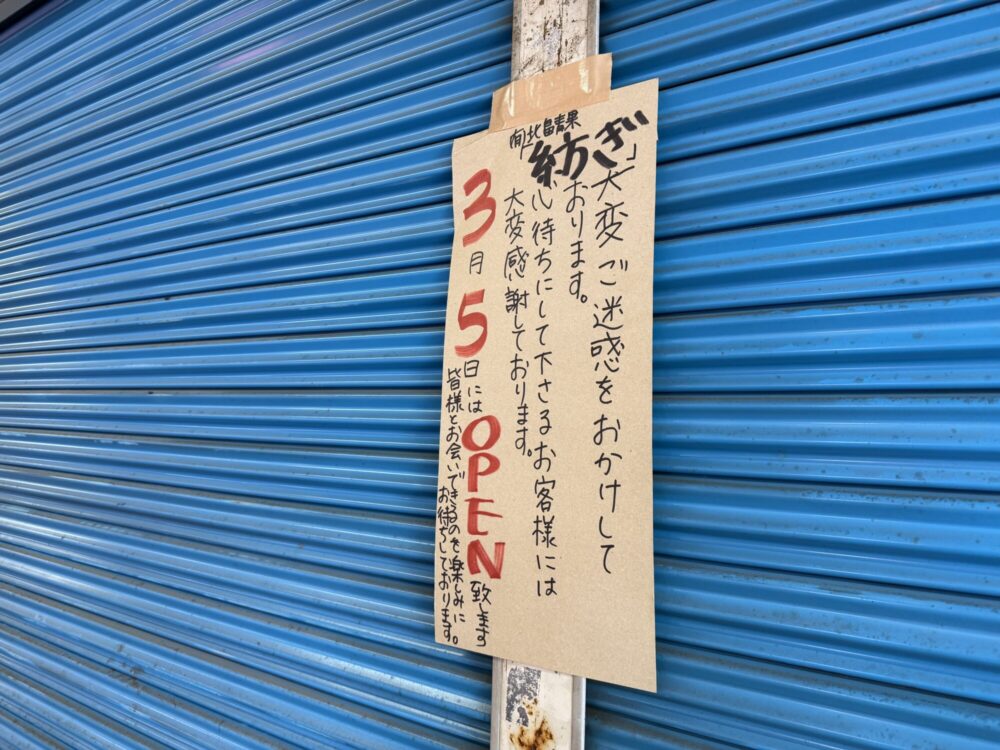 ㈲北畠青果
紡ぎ」
大変ご迷惑をおかけして
おります。
心待ちにして下さるお客様には
大変感謝しております。
3月5日にはOPEN致します
皆様とお会いできるのを楽しみに
お待ちしております。